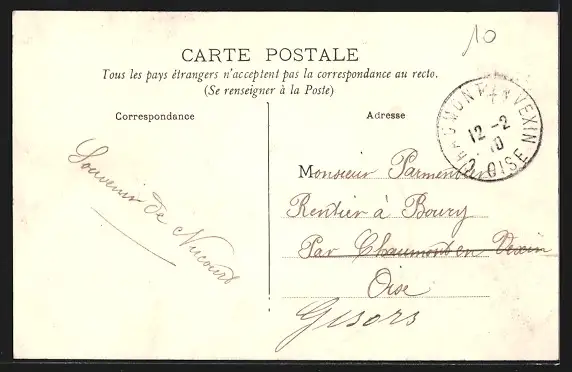 10
CARTE POSTALE
Tous les pays étrangers n'acceptent pas la correspondance au recto.
(Se renseigner à la Poste)
Correspondance
Adresse
CHAUMONT-EN-VEXIN
12 -2
10
OISE
Souvenir de Nucourt
Monsieur Parmentier
Rentier à Boury
Par Chaumont en Vexin
Oise
Gisors